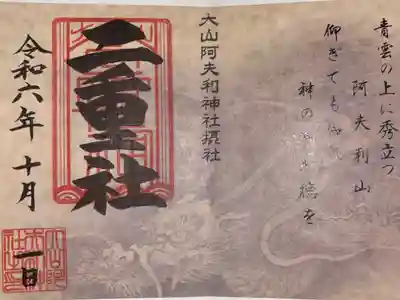 青雲の上に秀立つ
阿夫利山
仰ぎても仰げ
神の御徳を
大山阿夫利神社摂社
二重社
令和六年十月
一日